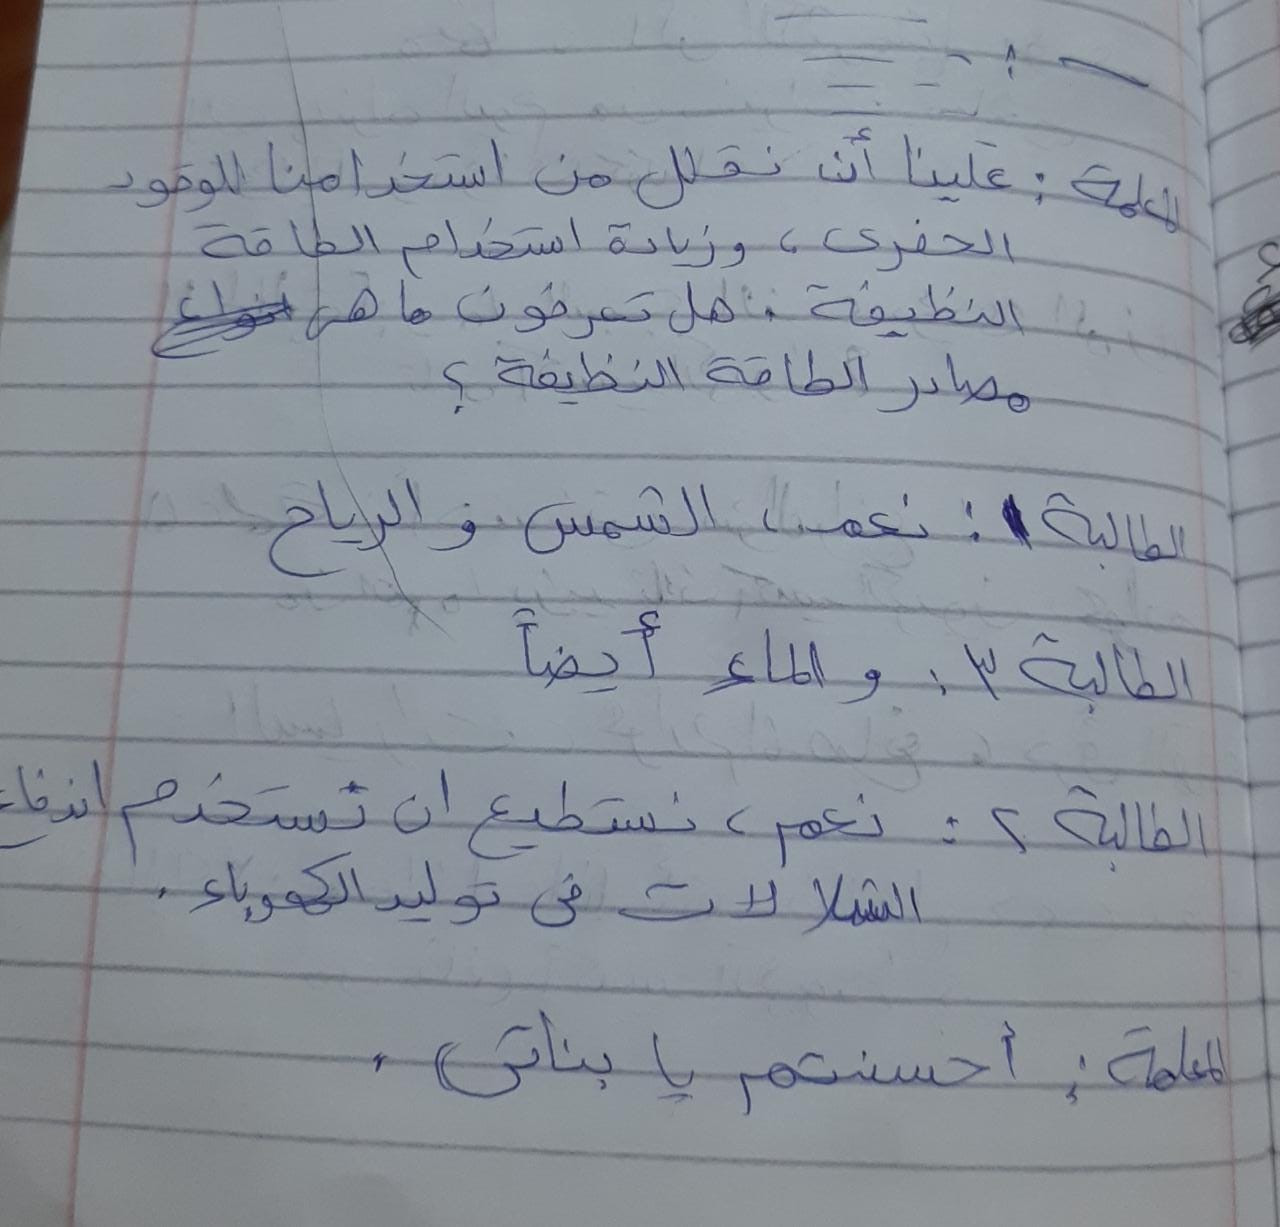 المعلمة : علينا أن نقلل من استخدامنا للوقود
الحفرى ، وزيادة استخدام الطاقة
النظيفة . هل تعرفون ما هى
مصادر الطاقة النظيفة ؟
الطالبة ١ : نعم ، الشمس و الرياح
الطالبة ٣ : و الماء أيضاً
الطالبة ٢ : نعم ، نستطيع ان نستخدم اندفاع
الشلالات فى توليد الكهرباء .
المعلمة : أحسنتم يا بناتى .